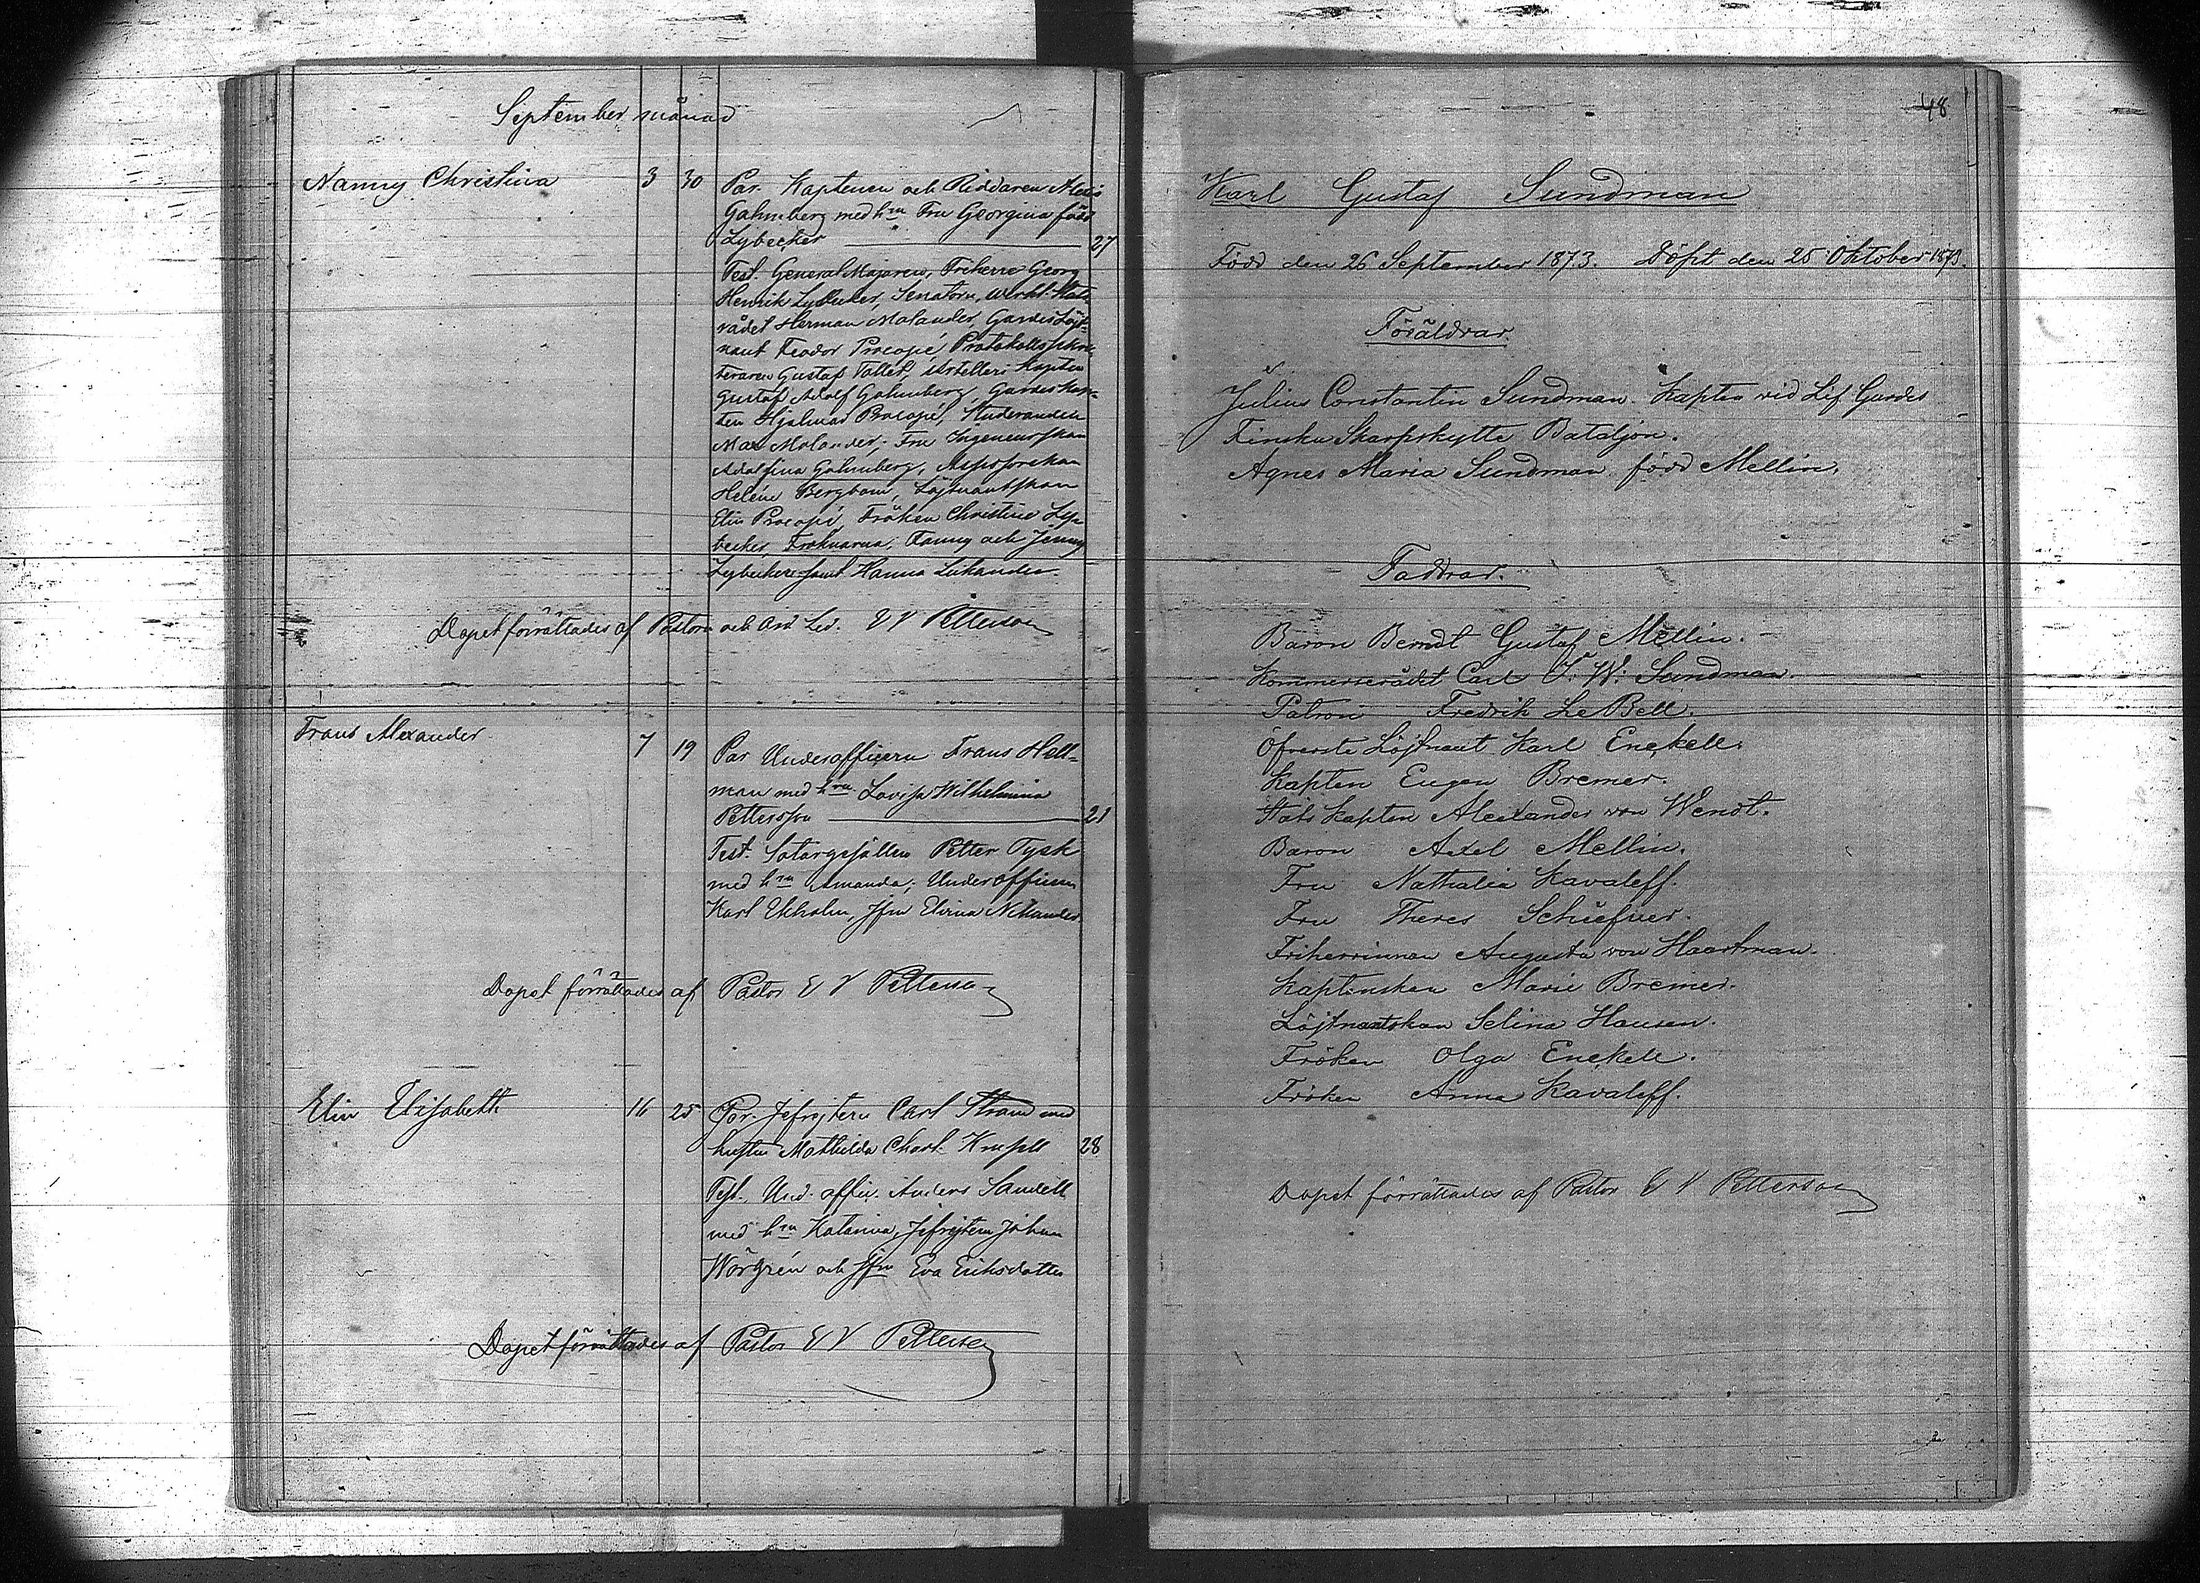 September månad
Nanny Christina 3 30 Par. Kaptenen och Riddaren Alexis
Gahmberg med hru Fru Georgina född
Lybecker 27
Test. General Majoren, Friherre Georg
Henrik Lybecker, Senatorn, Werkl. Stats
rådet Herman Molander, Gardes Löjt-
nant Feodor Procopé, Protokollssekre-
teraren Gustaf Tallet, Artilleri Kapten
Gustaf Adolf Gahmberg, Gardes Kap-
ten Hjalmar Procopé, Studeranden
Max Molander; Fru Ingeneurskan
Adolfina Gahmberg,
Heléne Bergbom, Löjtnantskan
Elin Procopé, Fröken Christine Ly-
becker, Fröknarna, Fanny och Jenny
Lybecker samt Hanna Lukander.
Dopet förrättades af Pastorn och Ord Led. E V Petterson
Frans Alexander 7 19 Par Underofficern Frans Hell-
man med hru Lovisa Wilhelmina
Pettersson 21
Test. Sotargesällen Petter Tysk
med hru Amanda; Underofficern
Karl Ekholm, Jfru Elvira Nikander
Dopet förrättades af Pastor E V Petterson
Elin Elisabeth 16 25 Par. Jefrejtern Carl Strand med
hustru Mathilda Charl.
28
Test. Und. offic. Anders Sandell
med hru Katarina, Jefrejtern Johan
Wörgrén och Jfru Eva Eriksdotter
Dopet förrättades af Pastor E V Petterson
48
Karl Gustaf Sundman
Född den 26 September 1873. Döpt den 25 Oktober 1873.
Föräldrar.
Julius Constantin Sundman Kapten vid Lif Gardes
Finska Skarpskytte Bataljon.
Agnes Maria Sundman född Mellin.
Faddrar.
Baron Berndt Gustaf Mellin.
Kommerserådet Carl F. W. Sundman.
Patron Fredrik Le Bell.
Öfverste Löjtnant Karl Enckell.
Kapten Eugen Bremer.
Stabs Kapten Alexander von Wendt.
Baron Axel Mellin.
Fru Nathalia Kavaleff.
Fru Theres Schiefner.
Friherrinnan Augusta von Haartman.
Kaptinskan Marie Bremer.
Löjtnantskan Selina Hausen.
Fröken Olga Enckell.
Fröken Anna Kavaleff.
Dopet förrättades af Pastor E V Petterson